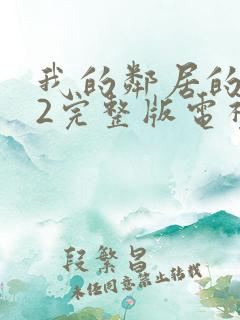 我的鄰居的
2完整版電視
段繁昌
未经同意禁止转载